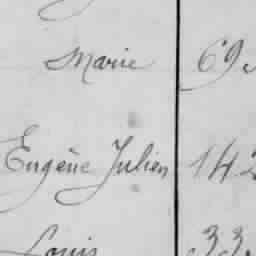 Marie 69
Eugène Julien 142
Louis 33